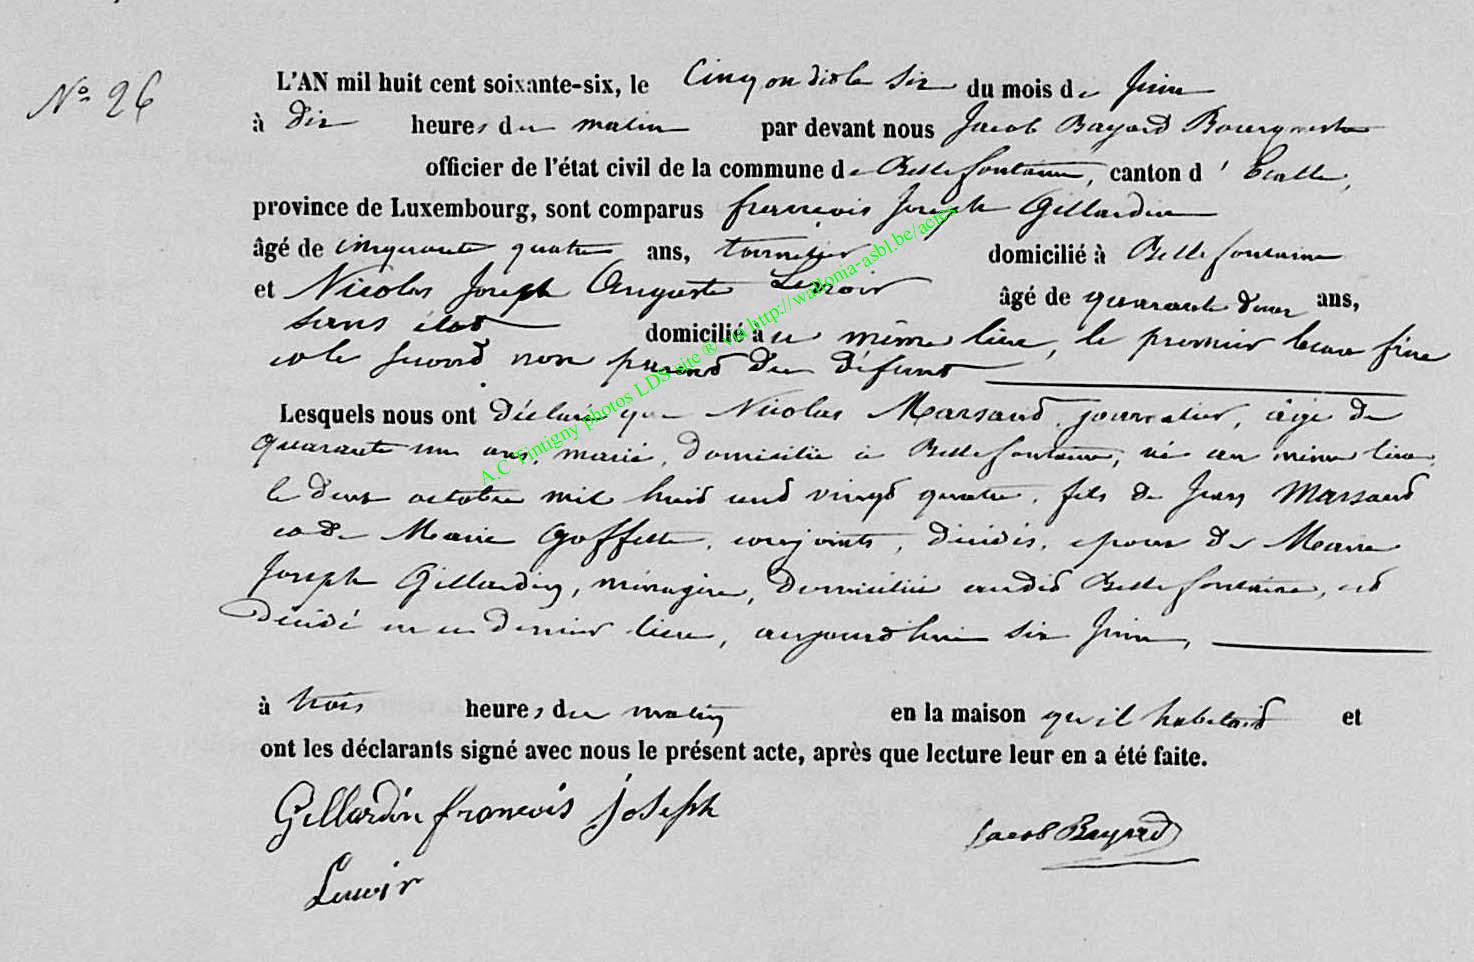 N° 26
L'AN mil huit cent soixante-six, le six du mois de Juin
à dix heures du matin par devant nous Jacob Bayard Bourgmestre
officier de l'état civil de la commune de Bellefontaine, canton d'Etalle,
province de Luxembourg, sont comparus francois Joseph Gillardin
âgé de cinquante quatre ans, domicilié à Bellefontaine
et Nicolas Joseph Auguste âgé de quarante deux ans,
sans état domicilié à même lieu, le premier beau frère
et le second non parent du défunt
Lesquels nous ont déclaré que Nicolas Marsaud, journalier, âgé de
quarante un ans, marié, domicilié à Bellefontaine, né au même lieu,
le deux octobre mil huit cent vingt quatre, fils de Jean Marsaud
et de Marie Goffette, conjoints, décédés, époux de Marie
Joseph Gillardin, ménagère, domiciliée audit Bellefontaine, est
décédé en ce dernier lieu, aujourd'hui six Juin,
à trois heures du matin en la maison qu'il habitait et
ont les déclarants signé avec nous le présent acte, après que lecture leur en a été faite.
Gillardin francois joseph
Jacob Bayard
A.C. Tintigny photos LDS site ® via http://wallonia-asbl.be/actes